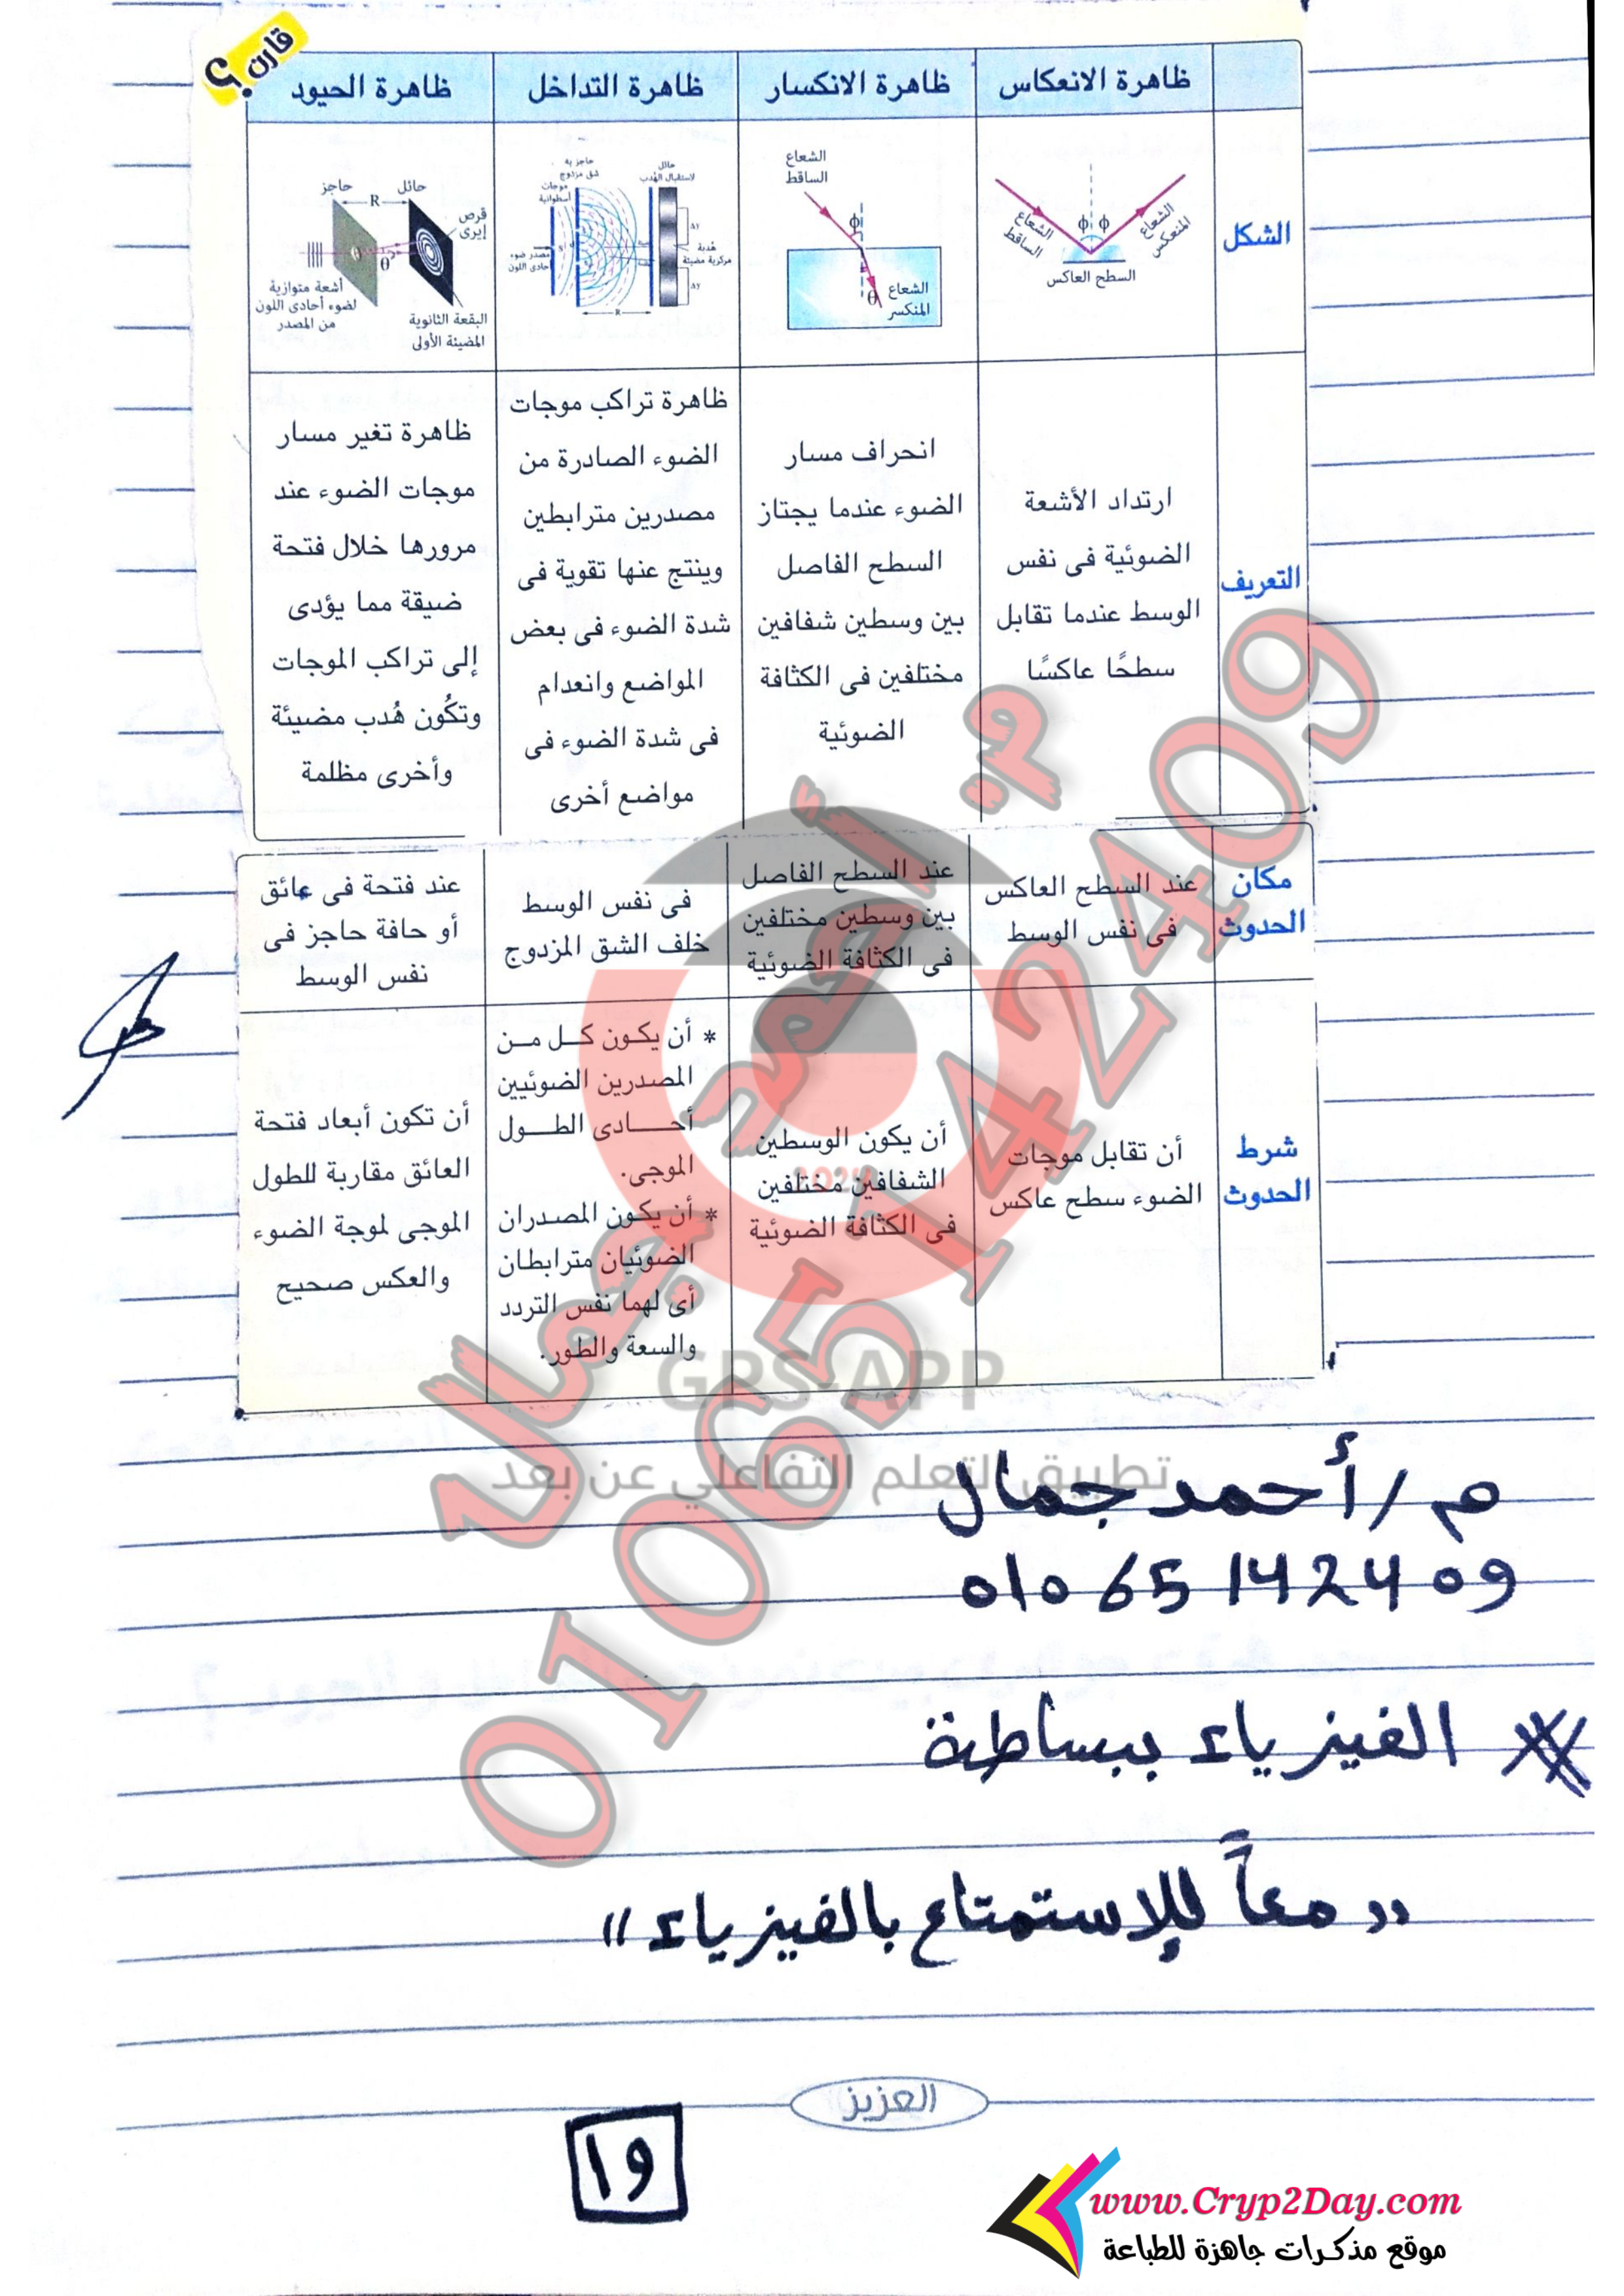 قارن ؟
ظاهرة الانعكاس
ظاهرة الانكسار
ظاهرة التداخل
ظاهرة الحيود
الشكل
الشعاع
الساقط
الشعاع
المنعكس
ϕ ϕ
السطح العاكس
الشعاع
الساقط
ϕ
θ
الشعاع
المنكسر
حاجز به
شق مزدوج
حائل
لاستقبال الهُدب
موجات
أسطوانية
مصدر ضوء
أحادى اللون
Δy
هُدبة
مركزية مضيئة
Δy
R
حاجز
حائل
R
قرص
إيرى
θ
أشعة متوازية
لضوء أحادى اللون
من المصدر
البقعة الثانوية
المضيئة الأولى
التعريف
ارتداد الأشعة
الضوئية فى نفس
الوسط عندما تقابل
سطحًا عاكسًا
انحراف مسار
الضوء عندما يجتاز
السطح الفاصل
بين وسطين شفافين
مختلفين فى الكثافة
الضوئية
ظاهرة تراكب موجات
الضوء الصادرة من
مصدرين مترابطين
وينتج عنها تقوية فى
شدة الضوء فى بعض
المواضع وانعدام
فى شدة الضوء فى
مواضع أخرى
ظاهرة تغير مسار
موجات الضوء عند
مرورها خلال فتحة
ضيقة مما يؤدى
إلى تراكب الموجات
وتكُون هُدب مضيئة
وأخرى مظلمة
مكان
الحدوث
عند السطح العاكس
فى نفس الوسط
عند السطح الفاصل
بين وسطين مختلفين
فى الكثافة الضوئية
فى نفس الوسط
خلف الشق المزدوج
عند فتحة فى عائق
أو حافة حاجز فى
نفس الوسط
شرط
الحدوث
أن تقابل موجات
الضوء سطح عاكس
أن يكون الوسطين
الشفافين مختلفين
فى الكثافة الضوئية
* أن يكون كل من
المصدرين الضوئيين
أحادى الطول
الموجى.
* أن يكون المصدران
الضوئيان مترابطان
أى لهما نفس التردد
والسعة والطور.
أن تكون أبعاد فتحة
العائق مقاربة للطول
الموجى لموجة الضوء
والعكس صحيح
م/ أحمد جمال
01065142409
GPS-APP
تطبيق التعلم التفاعلي عن بعد
م / أحمد جمال
01065142409
الفيزياء ببساطة
" معاً للإستمتاع بالفيزياء "
العزيز
19
www.Cryp2Day.com
موقع مذكرات جاهزة للطباعة